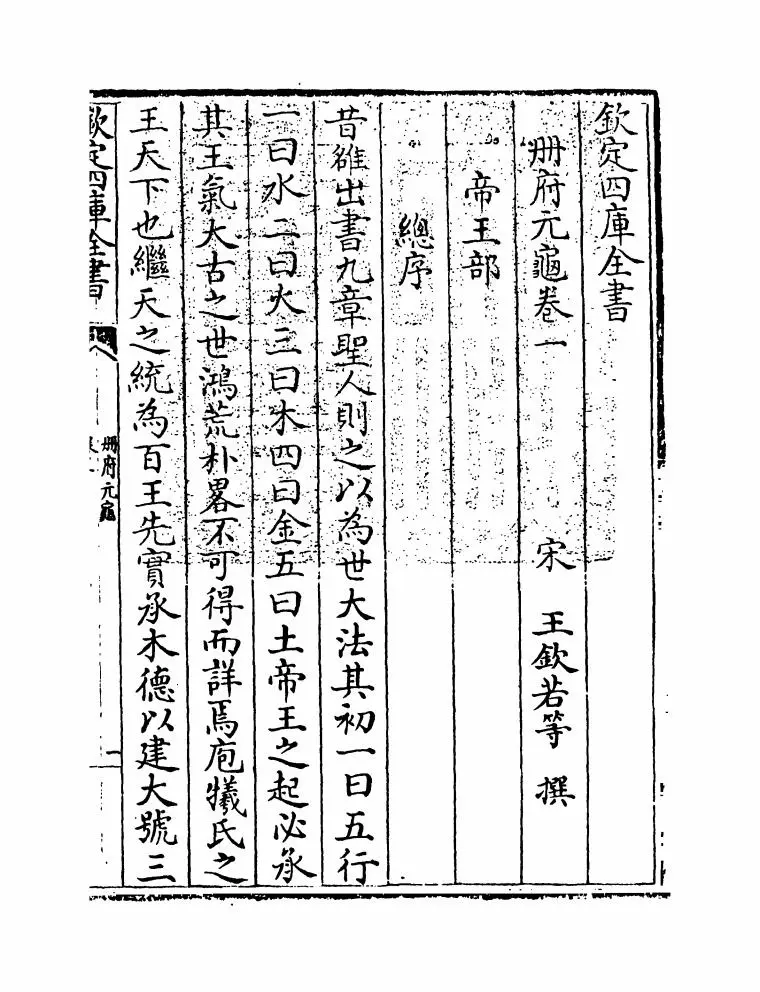 欽定四庫全書
冊府元龜卷一 宋 王欽若等 撰
帝王部
總序
昔雒出書九章聖人則之以為世大法其初一曰五行
一曰水二曰火三曰木四曰金五曰土帝王之起必承
其王氣大古之世鴻荒朴畧不可得而詳焉庖犧氏之
王天下也繼天之統為百王先實承木德以建大號三
欽定四庫全書
冊府元龜
一